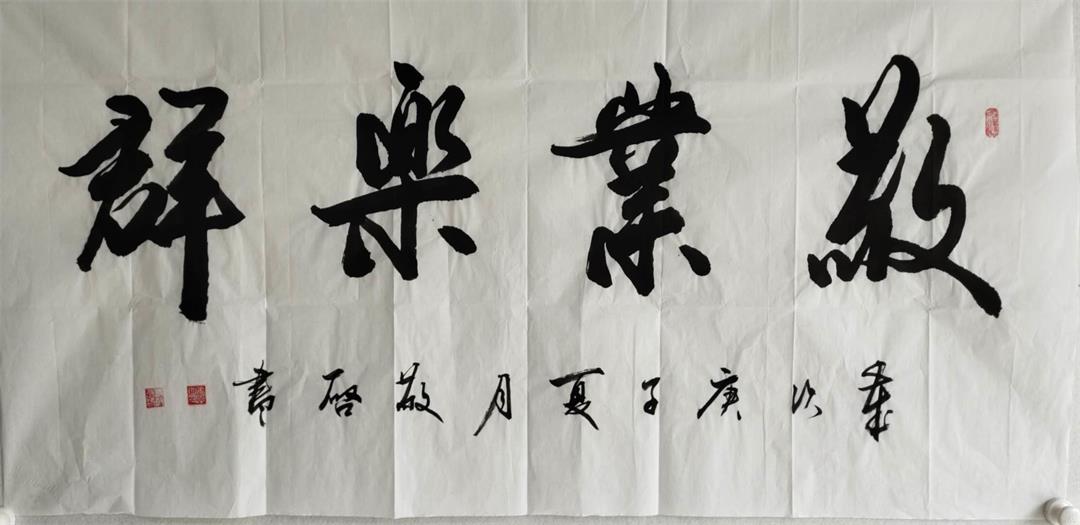 敬業樂群
歲次庚子夏月敬啓書